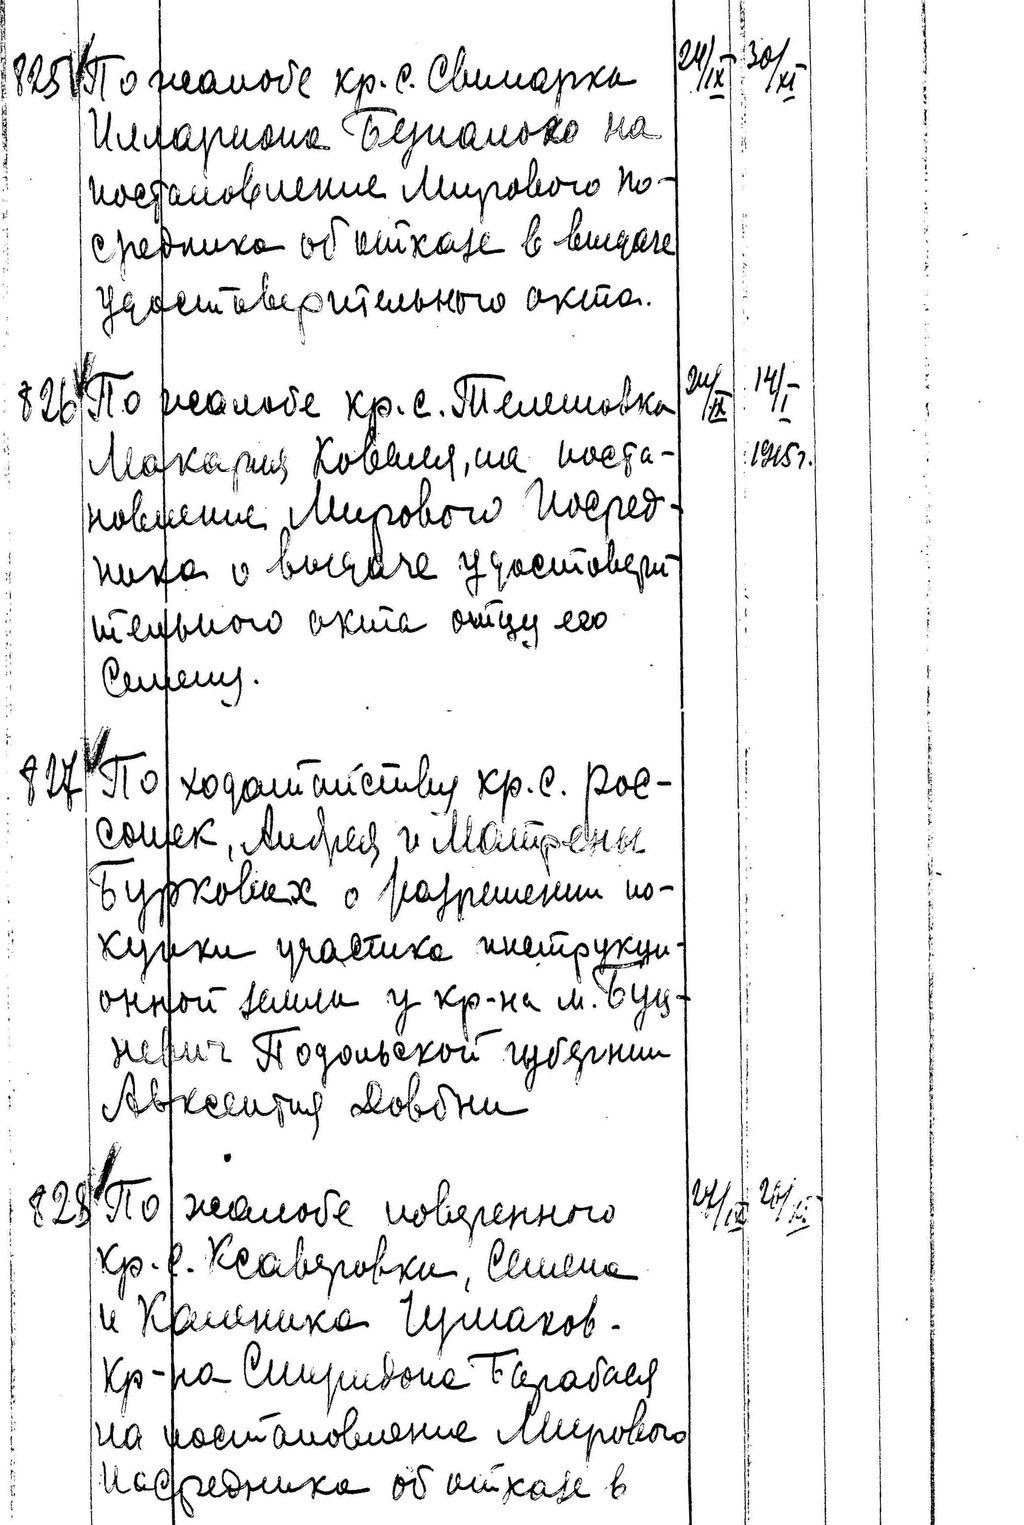 825 По жалобе кр. с. Свинарка 24/IX 30/XI
Иллариона Безпалого на
постановление Мирового По-
средника об отказе в выдаче
удостоверительного акта.
826 По жалобе кр. с. Телешовка 24/IX 14/I
Макария Коваля, на поста- 1915 г.
новление Мирового Посред-
ника о выдаче удостовери
тельного акта отцу его
Семену.
827 По ходатайству кр. с. Рос-
сошек, Андрея и Матрены
Бурковых о разрешении по-
купки участка инструкци-
онной земли у кр-на м. Буц-
невич Подольской губернии
Авксентия Довбни
828 По жалобе поверенного 24/IX 20/XI
кр. с. Ксаверовки, Семена
и Каленика Чумаков -
кр-на Спиридона Барабася
на постановление Мирового
Посредника об отказе в